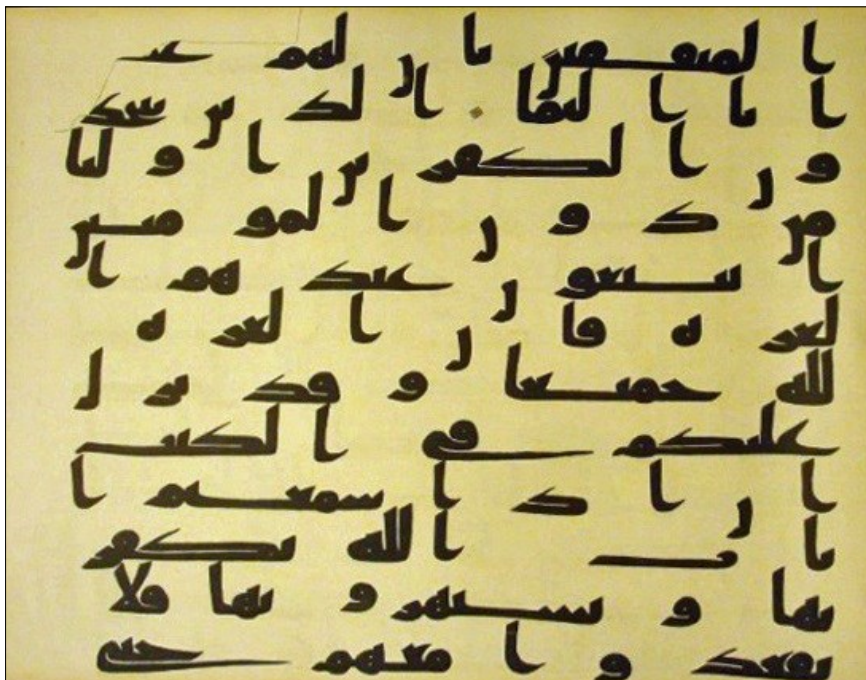 المنفقين بان لهم عذ
ابا اليما الذين يتخذ
ون الكفرين اوليا
من دون المومنين
ايبتغون عندهم ا
لعزه فان العزه
لله جميعا وقد نزل
عليكم في الكتب
ان اذا سمعتم ا
يات الله يكفر
بها ويستهزو بها فلا
تقعدوا معهم حتى